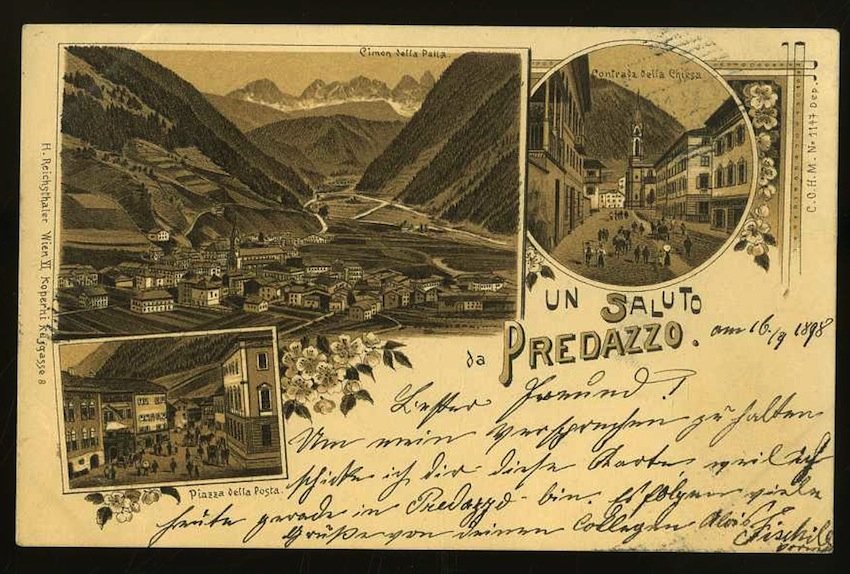 Cimon della Palla.
Contrada della Chiesa
H. Reichsthaler Wien VI, Koperni kusgasse 8
C.O.H.M. No 1147 Dep.
UN SALUTO
da PREDAZZO.
am 16./9 1898
Piazza della Posta.
Bester Freund!
Um mein Versprechen zu halten
schicke ich dir diese Karte, weil ich
heute gerade in Predazzo bin. Es folgen viele
Grüße von deinen Collegen Alois